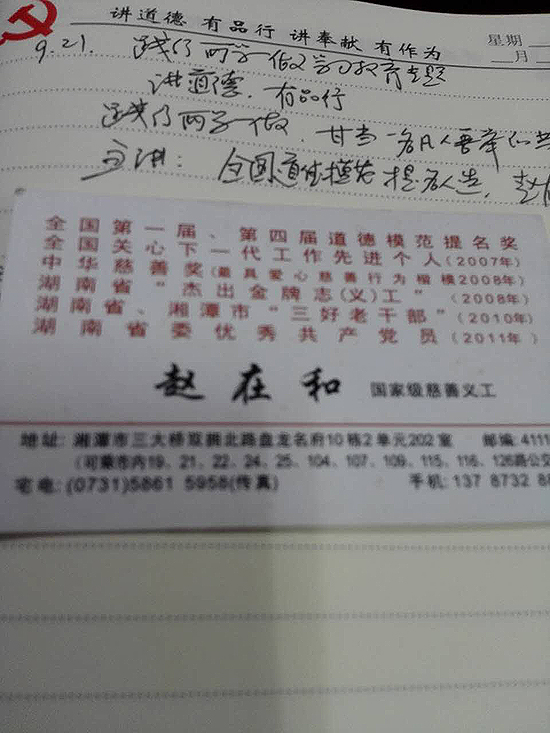 讲道德 有品行 讲奉献 有作为
星期
月
9.21. 践行两学一做学习教育专题
讲道德. 有品行
践行两学一做. 甘当一名
主讲: 全国道德模范提名人选.
全国第一届、第四届道德模范提名奖
全国关心下一代工作先进个人(2007年)
中华慈善奖(最具爱心慈善行为楷模2008年)
湖南省“杰出金牌志(义)工”(2008年)
湖南省、湘潭市“三好老干部”(2010年)
湖南省委优秀共产党员(2011年)
赵在和 国家级慈善义工
地址: 湘潭市三大桥双拥北路盘龙名府10栋2单元202室 邮编:4111
(可乘市内19、21、22、24、25、104、107、109、115、116、126路公交
宅电:(0731)5861 5958(传真) 手机: 137 8732 8